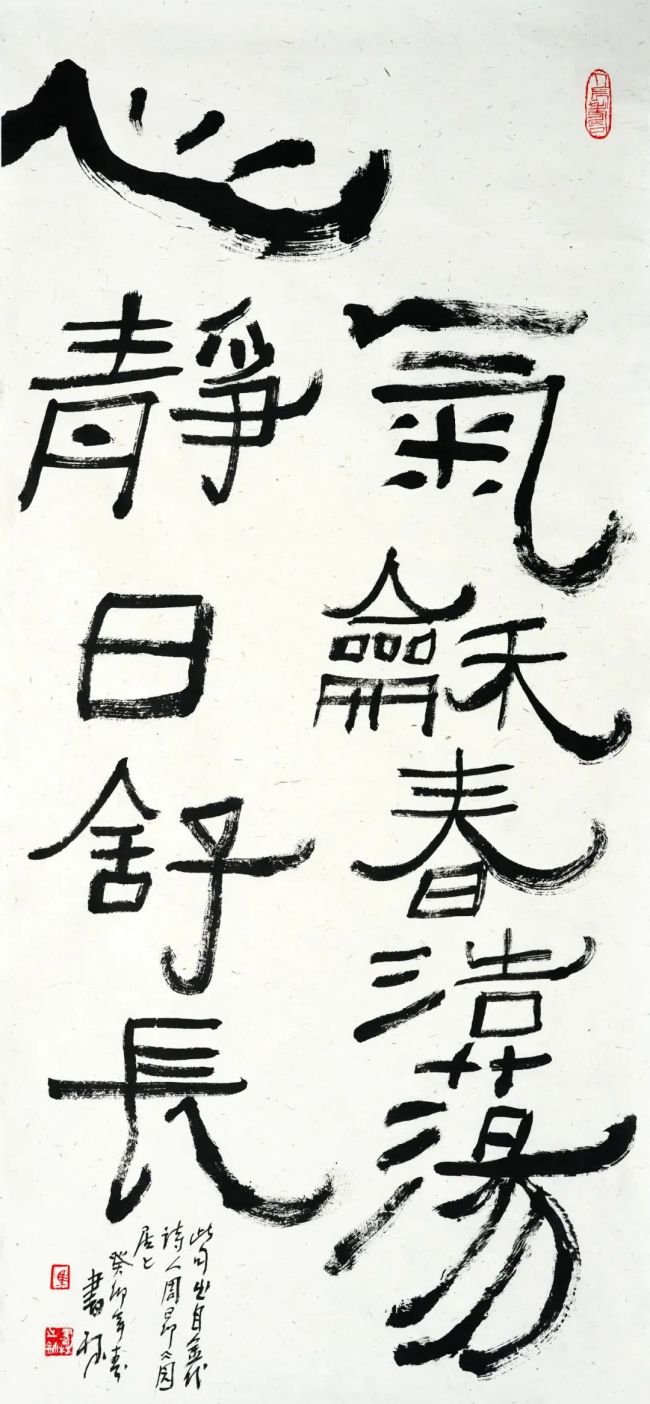 氣龢春浩蕩
心靜日舒長
此句出自金代
詩人周昂心園
居心
癸卯年春
書杜